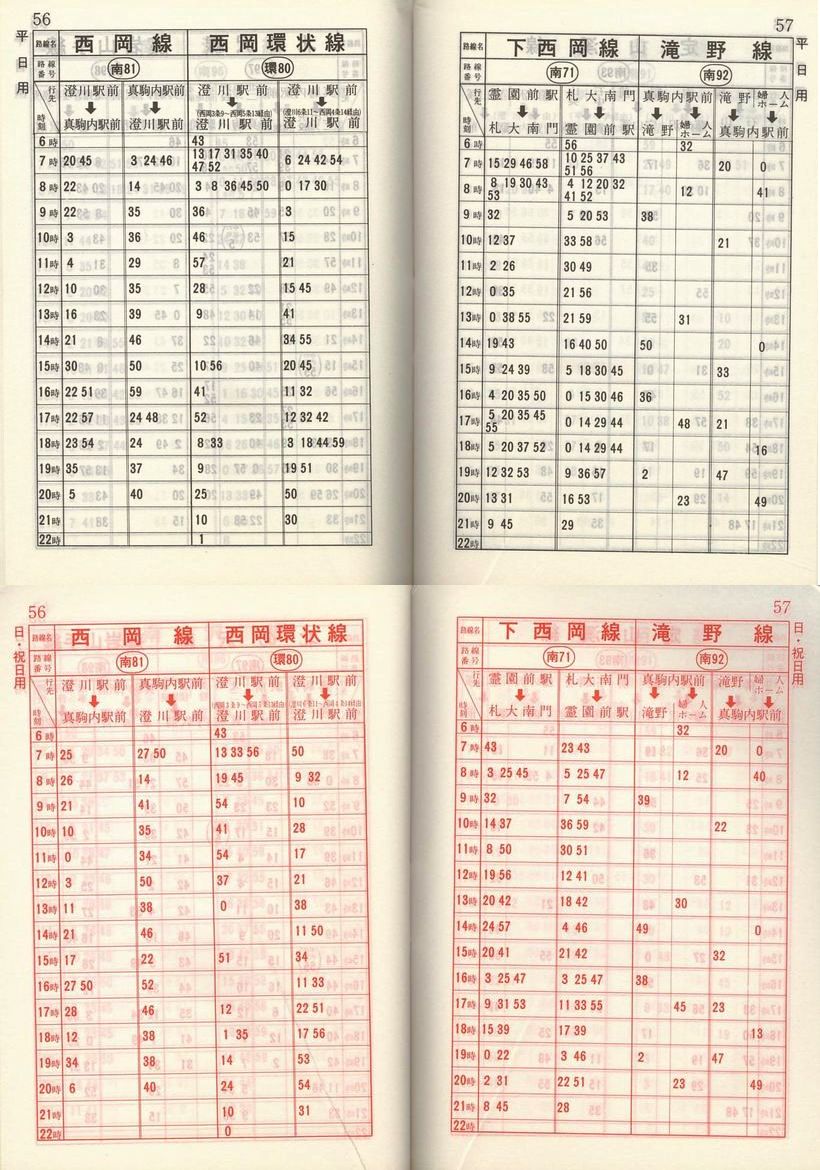 56
平日用
路線名 西岡線 西岡環状線
路線番号 南81 環80
行先 澄川駅前 真駒内駅前 澄川駅前 澄川駅前
(西岡3条9〜西岡5条13経由) (澄川6条11〜西岡4条14経由)
時刻 真駒内駅前 澄川駅前 澄川駅前 澄川駅前
6時 43
7時 20 45 3 24 46 13 17 31 35 40 6 24 42 54
47 52
8時 22 14 3 8 36 45 50 0 17 30
9時 22 35 36 3
10時 3 36 46 15
11時 4 29 57 21
12時 10 35 28 15 45
13時 16 39 9 41
14時 21 46 34 55
15時 30 50 10 56 20 45
16時 22 51 59 41 11 32
17時 22 57 24 48 52 12 32 42
18時 23 54 24 8 33 3 18 44 59
19時 35 37 9 19 51
20時 5 40 25 50
21時 10 30
22時 1
57
平日用
路線名 下西岡線 滝野線
路線番号 南71 南92
行先 霊園前駅 札大南門 真駒内駅前 滝野 婦人ホーム
時刻 札大南門 霊園前駅 滝野 婦人ホーム 真駒内駅前
6時 56 32
7時 15 29 46 58 10 25 37 43 20 0
51 56
8時 8 19 30 43 4 12 20 32 12 41
53 41 52
9時 32 5 20 53 38
10時 12 37 33 58 21
11時 2 26 30 49
12時 0 35 21 56
13時 0 38 55 21 59 31
14時 19 43 16 40 50 50 0
15時 9 24 39 5 18 30 45 33
16時 4 20 35 50 0 15 30 46 36
17時 5 20 35 45 0 14 29 44 48 21
55
18時 5 20 37 52 0 14 29 44 16
19時 12 32 53 9 36 57 2 47
20時 13 31 16 53 23 49
21時 9 45 29
22時
56
日・祝日用
路線名 西岡線 西岡環状線
路線番号 南81 環80
行先 澄川駅前 真駒内駅前 澄川駅前 澄川駅前
時刻 真駒内駅前 澄川駅前 澄川駅前 澄川駅前
6時 43
7時 25 27 50 13 33 56 50
8時 26 14 19 45 9 32
9時 21 41 54 10
10時 10 35 41 28
11時 0 34 54 17
12時 3 50 37 21
13時 11 38 0 38
14時 21 46 11 50
15時 17 22 51 34
16時 27 50 52 11 33
17時 28 46 12 22 51
18時 12 38 1 35 17 56
19時 34 38 14 53
20時 6 40 24 54
21時 10 31
22時 0
57
日・祝日用
路線名 下西岡線 滝野線
路線番号 南71 南92
行先 霊園前駅 札大南門 真駒内駅前 滝野 婦人ホーム
時刻 札大南門 霊園前駅 滝野 婦人ホーム 真駒内駅前
6時 32
7時 43 23 43 20 0
8時 3 25 45 5 25 47 12 40
9時 32 7 54 39
10時 14 37 36 59 22
11時 8 50 30 51
12時 19 56 12 41
13時 20 42 18 42 30
14時 24 57 4 46 49 0
15時 20 41 21 42 32
16時 3 25 47 3 25 47 38
17時 9 31 53 11 33 55 45 23
18時 15 39 17 39 13
19時 0 22 3 46 2 47
20時 2 31 22 51 23 49
21時 8 45 28
22時